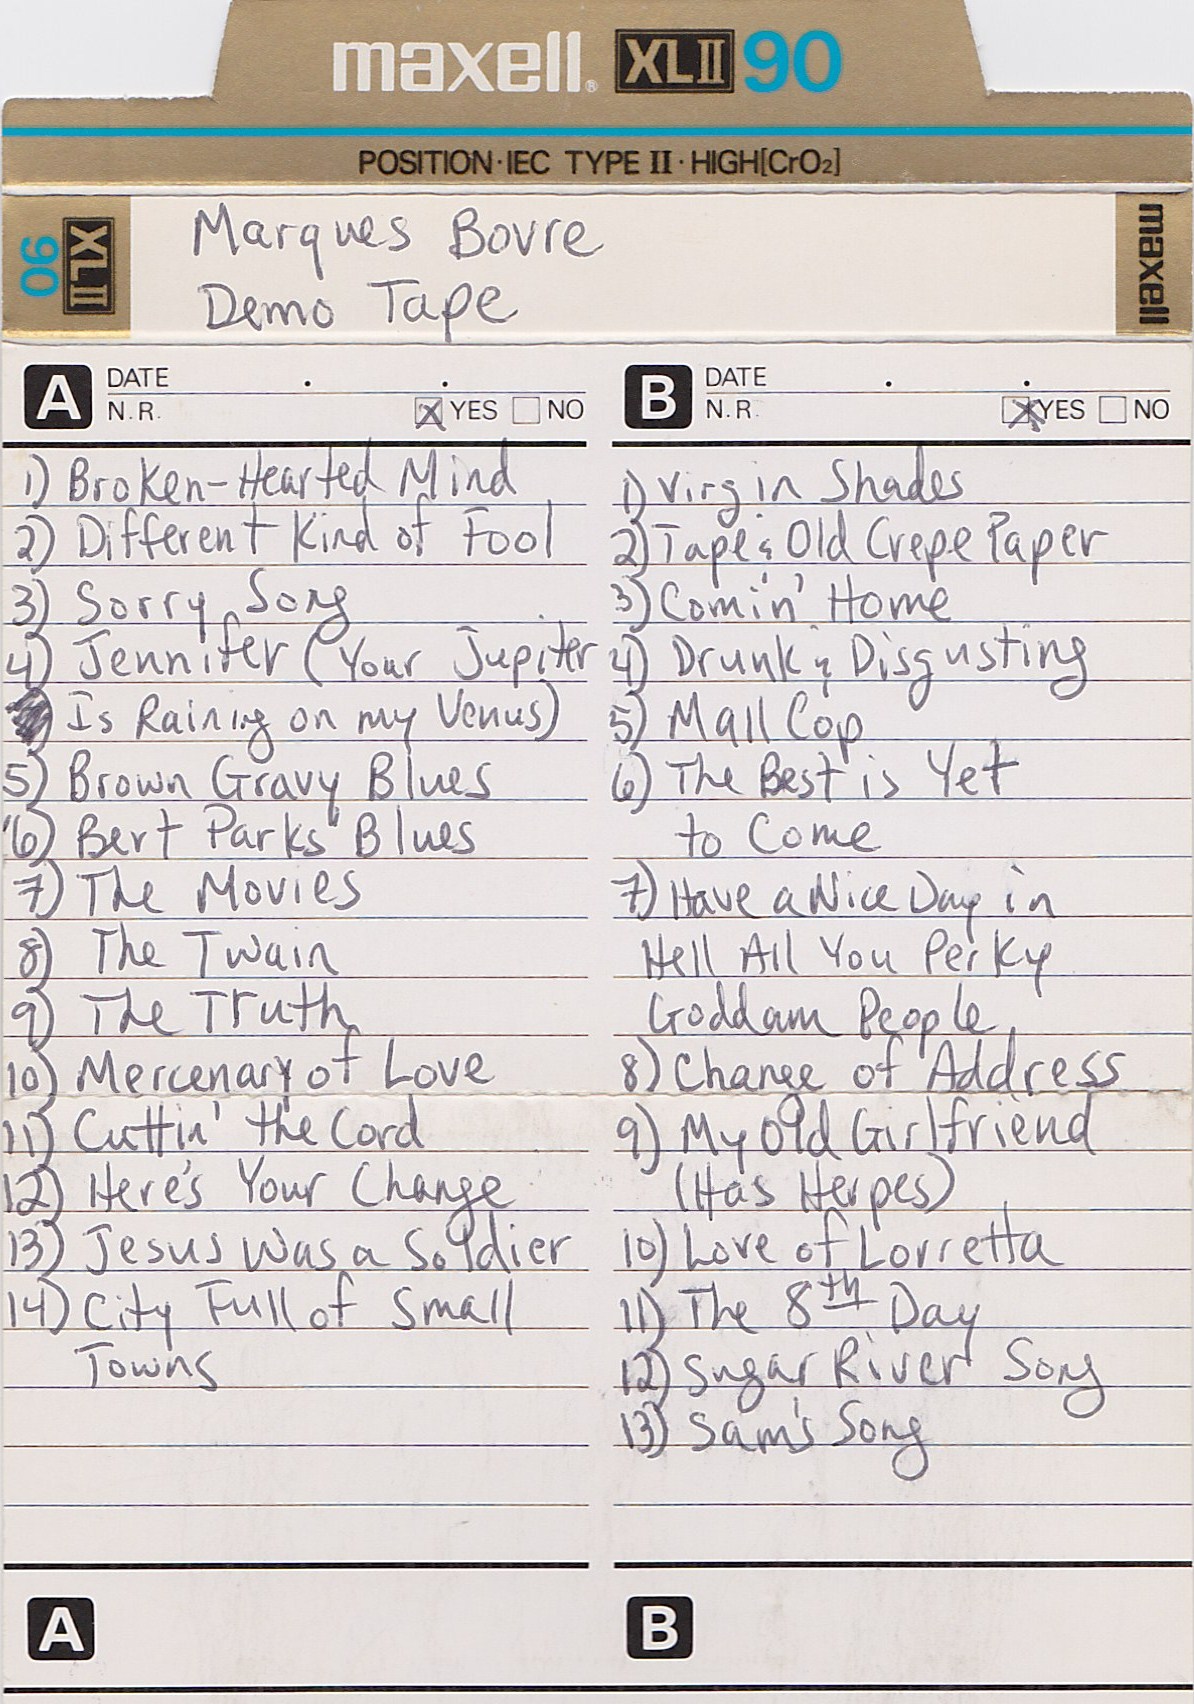 maxell® XLII 90
POSITION·IEC TYPE II·HIGH[CrO2]
XLII 90
Marques Bovre
Demo Tape
maxell
A DATE . .
N.R. YES NO
1) Broken-Hearted Mind
2) Different Kind of Fool
3) Sorry Song
4) Jennifer (Your Jupiter
Is Raining on my Venus)
5) Brown Gravy Blues
6) Bert Parks' Blues
7) The Movies
8) The Twain
9) The Truth
10) Mercenary of Love
11) Cuttin' the Cord
12) Here's Your Change
13) Jesus Was a Soldier
14) City Full of Small
Towns
A
B DATE . .
N.R. YES NO
1) Virgin Shades
2) Tape & Old Crepe Paper
3) Comin' Home
4) Drunk & Disgusting
5) Mall Cop
6) The Best is Yet
to Come
7) Have a Nice Day in
Hell All You Perky
Goddam People
8) Change of Address
9) My Old Girlfriend
(Has Herpes)
10) Love of Lorretta
11) The 8th Day
12) Sugar River Song
13) Sam's Song
B